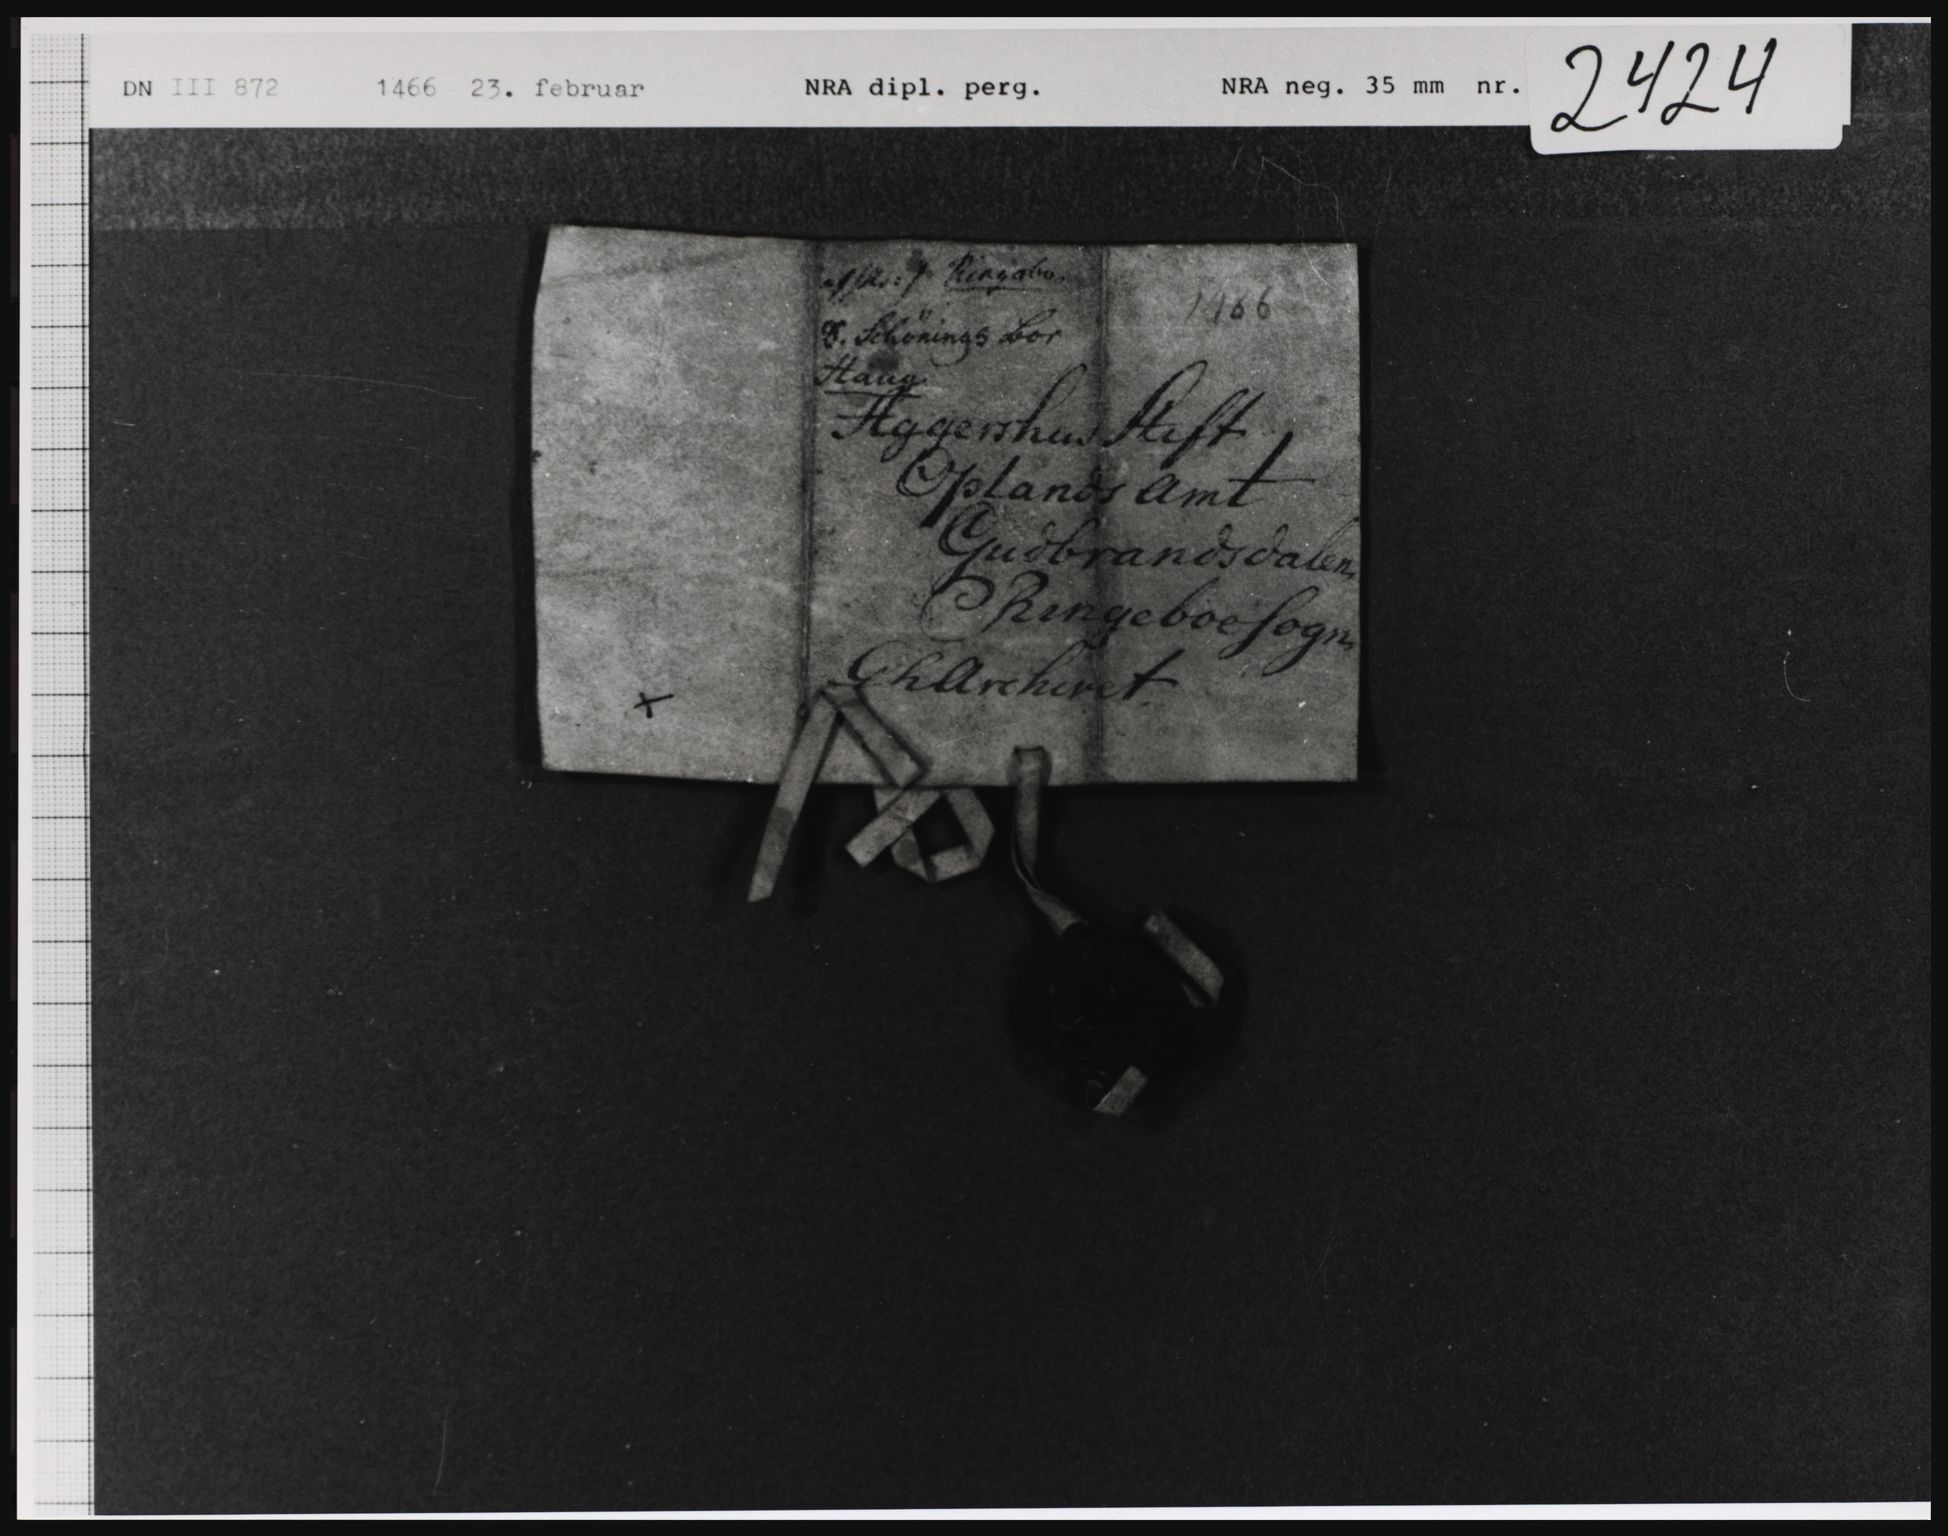 DN III 872 1466 23. februar NRA dipl. perg. NRA neg. 35 mm nr. 2424
Ringabo.
1466
S. Schönings Bor
Haug
Aggershus Stift
Oplands Amt
Gudbrandsdalen
Ringeboe Sogn
Archivet